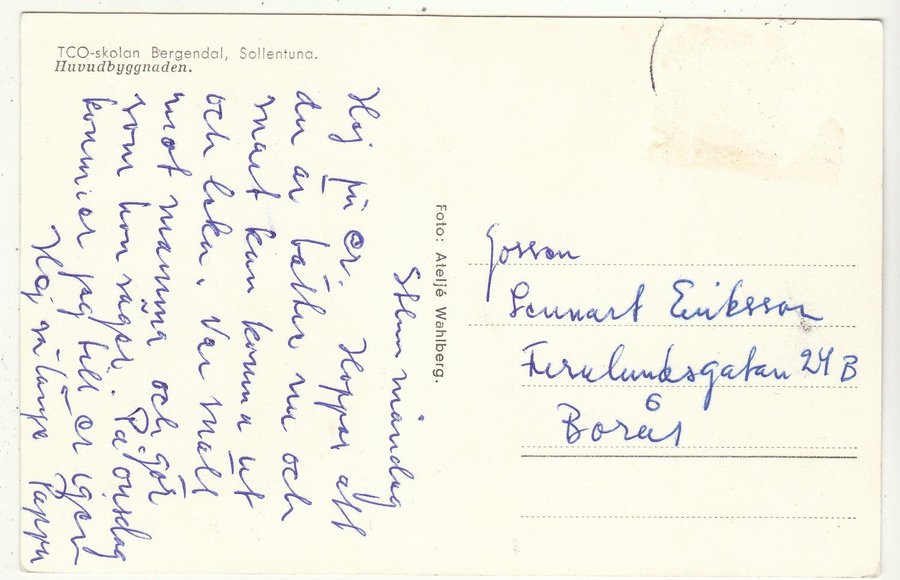 TCO-skolan Bergendal, Sollentuna.
Huvudbyggnaden.
Sthlm måndag
Hej på er. Hoppas att
du är bättre nu och
snart kan komma ut
och leka. Var snäll
mot mamma och gör
som hon säger. På onsdag
kommer jag till er igen
Hej så länge Pappa
Foto: Ateljé Wahlberg.
Gossen
Lennart Eriksson
Ferulundsgatan 24 B
6
Borås